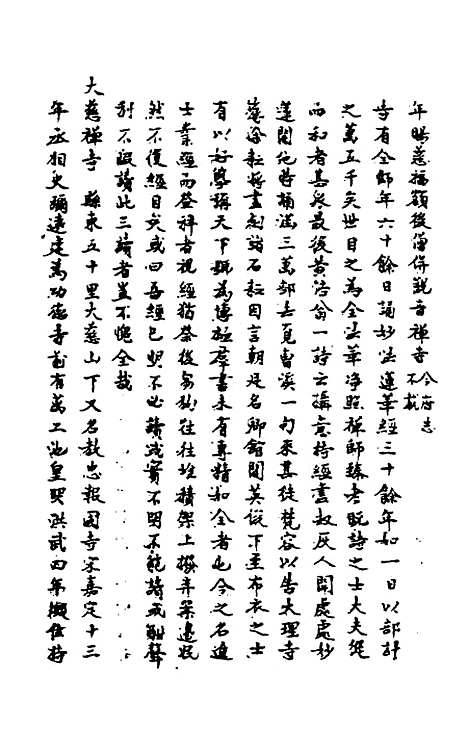 年賜慈福額後當併觀音禪寺今府志不載
寺有全師年六十餘日誦妙法蓮華經三十餘年如一日以部計
之萬五千矣世目之為全法華淨照禪師臻老既詩之士大夫從
而和者甚眾最後黃涪翁一詩云積意持經盡叔灰人間處處妙
蓮開他時桶滿三萬部去覓曹溪一句來其徒梵容以告大理寺
丞徐耘將書刻諸石耘因言朝廷名卿館閣英俊下至布衣之士
有以好學稱天下號為博極群書未有專精如全者也今之名進
士業經而登祥者視經猶祭後芻狗往往堆積架上撥弃案邊恬
然不復經目矣或曰吾經已契不必讀或實不明不能讀或斷聲
別不暇讀此三讀者豈不愧全哉
大慈禪寺 縣東五十里大慈山下又名教忠報國寺宋嘉定十三
年丞相史彌遠建為功德寺前有萬工池皇明洪武四年燬住持